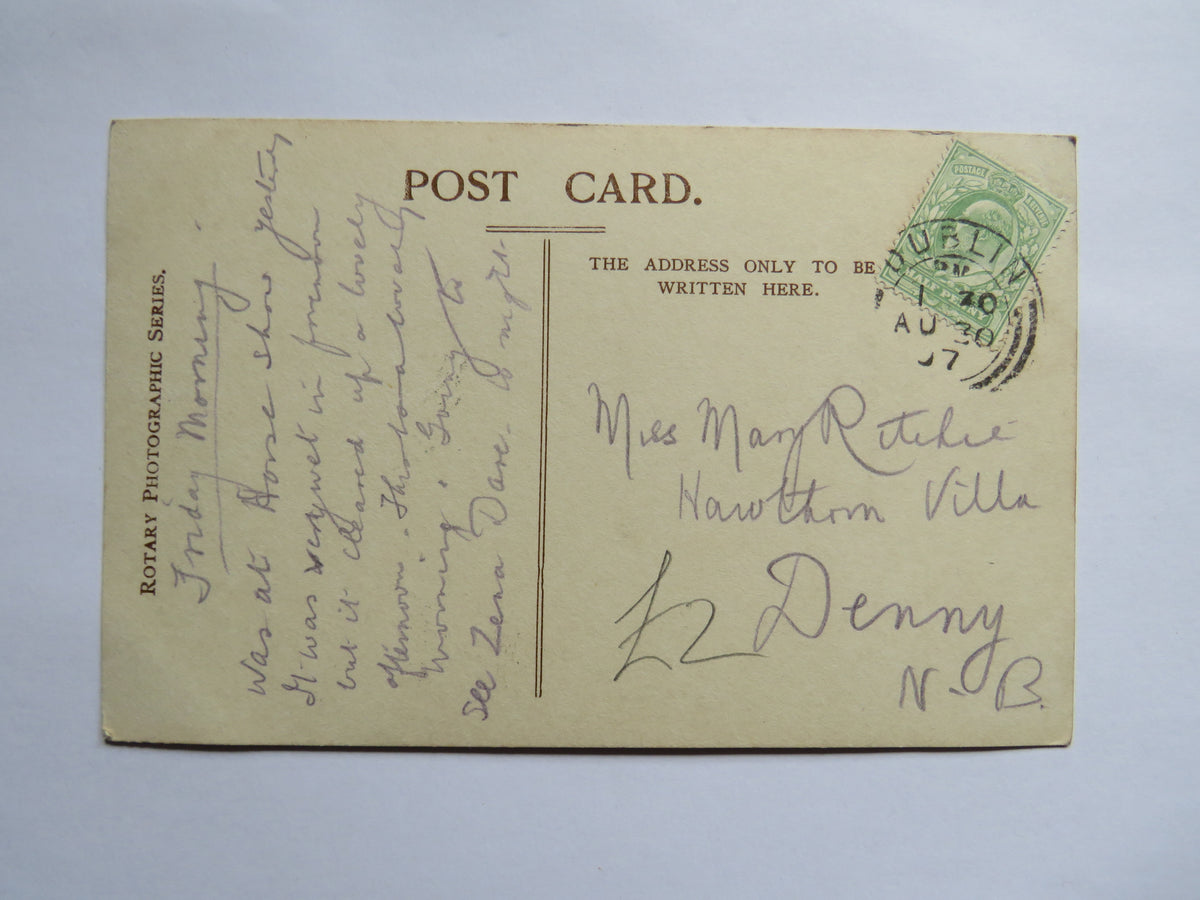 POST CARD.
ROTARY PHOTOGRAPHIC SERIES.
Friday Morning.
Was at Horse Show yesterday
It was very wet in forenoon
but it cleared up a lovely
afternoon. This is a lovely
morning. Going to
see Zena Dare to night.
THE ADDRESS ONLY TO BE
WRITTEN HERE.
POSTAGE REVENUE
HALFPENNY
DUBLIN
PM
1 30
AU 30
07
Miss Mary Ritchie
Hawthorn Villa
Denny
N.B.
£2